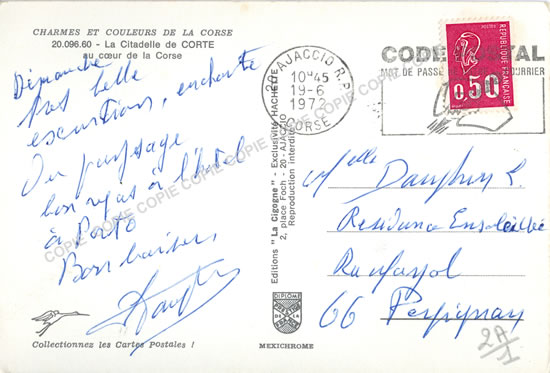 CHARMES ET COULEURS DE LA CORSE
20.096.60 - La Citadelle de CORTE
au cœur de la Corse
Dimanche
très belle
excursion, enchantée
Du paysage
bon repas à l'hôtel
à Porto
Bons baisers
Collectionnez les Cartes Postales !
Editions "La Cigogne" - Exclusivité HACHETTE
2, place Foch - 20 - AJACCIO
Reproduction interdite
DIPLOME
MEXICHROME
20 AJACCIO R.P.
10H45
19-6
1972
CORSE
CODE POSTAL
MOT DE PASSE COURRIER
REPUBLIQUE FRANÇAISE
0,50
Melle
Résidence Ensoleillée
Rue
66 Perpignan
2A/1
COPIE COPIE COPIE COPIE COPIE COPIE COPIE COPIE